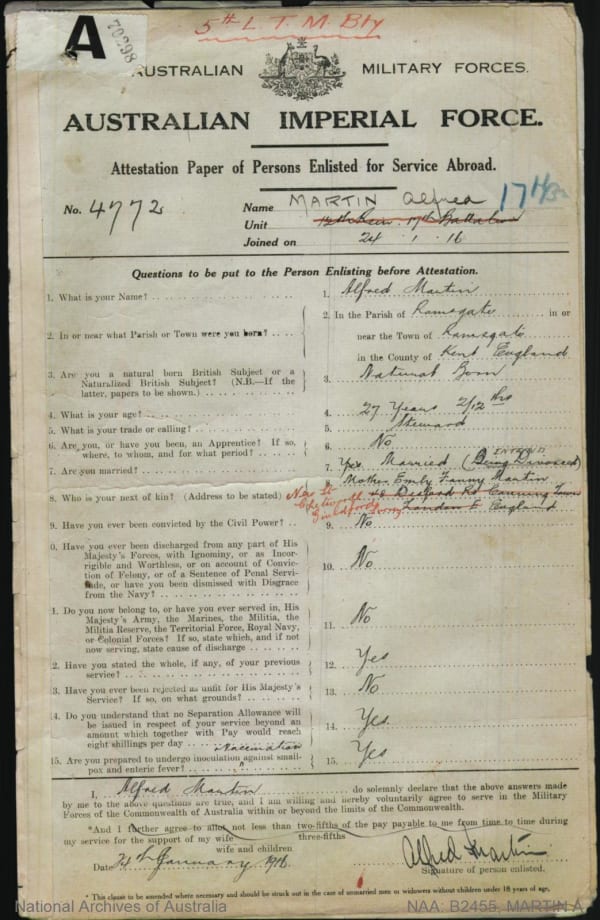 A
70298
5th L. T. M. Bty
AUSTRALIAN MILITARY FORCES.
AUSTRALIAN IMPERIAL FORCE.
Attestation Paper of Persons Enlisted for Service Abroad.
No. 4772 Name MARTIN Alfred
Unit 17th Battalion
Joined on 24 . 1 . 16
Questions to be put to the Person Enlisting before Attestation.
1. What is your Name? 1. Alfred Martin
2. In or near what Parish or Town were you born? 2. In the Parish of Ramsgate in or
near the Town of Ramsgate
in the County of Kent England
3. Are you a natural born British Subject or a
Naturalized British Subject? (N.B.—If the
latter, papers to be shown.) 3. Natural Born
4. What is your age? 4. 27 Years 2/12 ths
5. What is your trade or calling? 5. Steward
6. Are you, or have you been, an Apprentice? If so,
where, to whom, and for what period? 6. No
7. Are you married? 7. Yes Married (Being Divorced)
8. Who is your next of kin? (Address to be stated) 8. Mother Emily Fanny Martin
Rd Canning Town
London E England
New St
Guildford
9. Have you ever been convicted by the Civil Power? 9. No
0. Have you ever been discharged from any part of His
Majesty's Forces, with Ignominy, or as Incor-
rigible and Worthless, or on account of Convic-
tion of Felony, or of a Sentence of Penal Servi-
tude, or have you been dismissed with Disgrace
from the Navy? 10. No
1. Do you now belong to, or have you ever served in, His
Majesty's Army, the Marines, the Militia, the
Militia Reserve, the Territorial Force, Royal Navy,
or Colonial Forces? If so, state which, and if not
now serving, state cause of discharge 11. No
2. Have you stated the whole, if any, of your previous
service? 12. Yes
3. Have you ever been rejected as unfit for His Majesty's
Service? If so, on what grounds? 13. No
4. Do you understand that no Separation Allowance will
be issued in respect of your service beyond an
amount which together with Pay would reach
eight shillings per day 14. Yes
vaccination
15. Are you prepared to undergo inoculation against small-
pox and enteric fever? 15. Yes
I, Alfred Martin do solemnly declare that the above answers made
by me to the above questions are true, and I am willing and hereby voluntarily agree to serve in the Military
Forces of the Commonwealth of Australia within or beyond the limits of the Commonwealth.
*And I further agree to allot not less than two-fifths of the pay payable to me from time to time during
three-fifths
my service for the support of my wife
wife and children
Date 24th January 1916 Alfred Martin
Signature of person enlisted.
* This clause to be amended where necessary and should be struck out in the case of unmarried men or widowers without children under 18 years of age.
National Archives of Australia NAA: B2455, MARTIN A